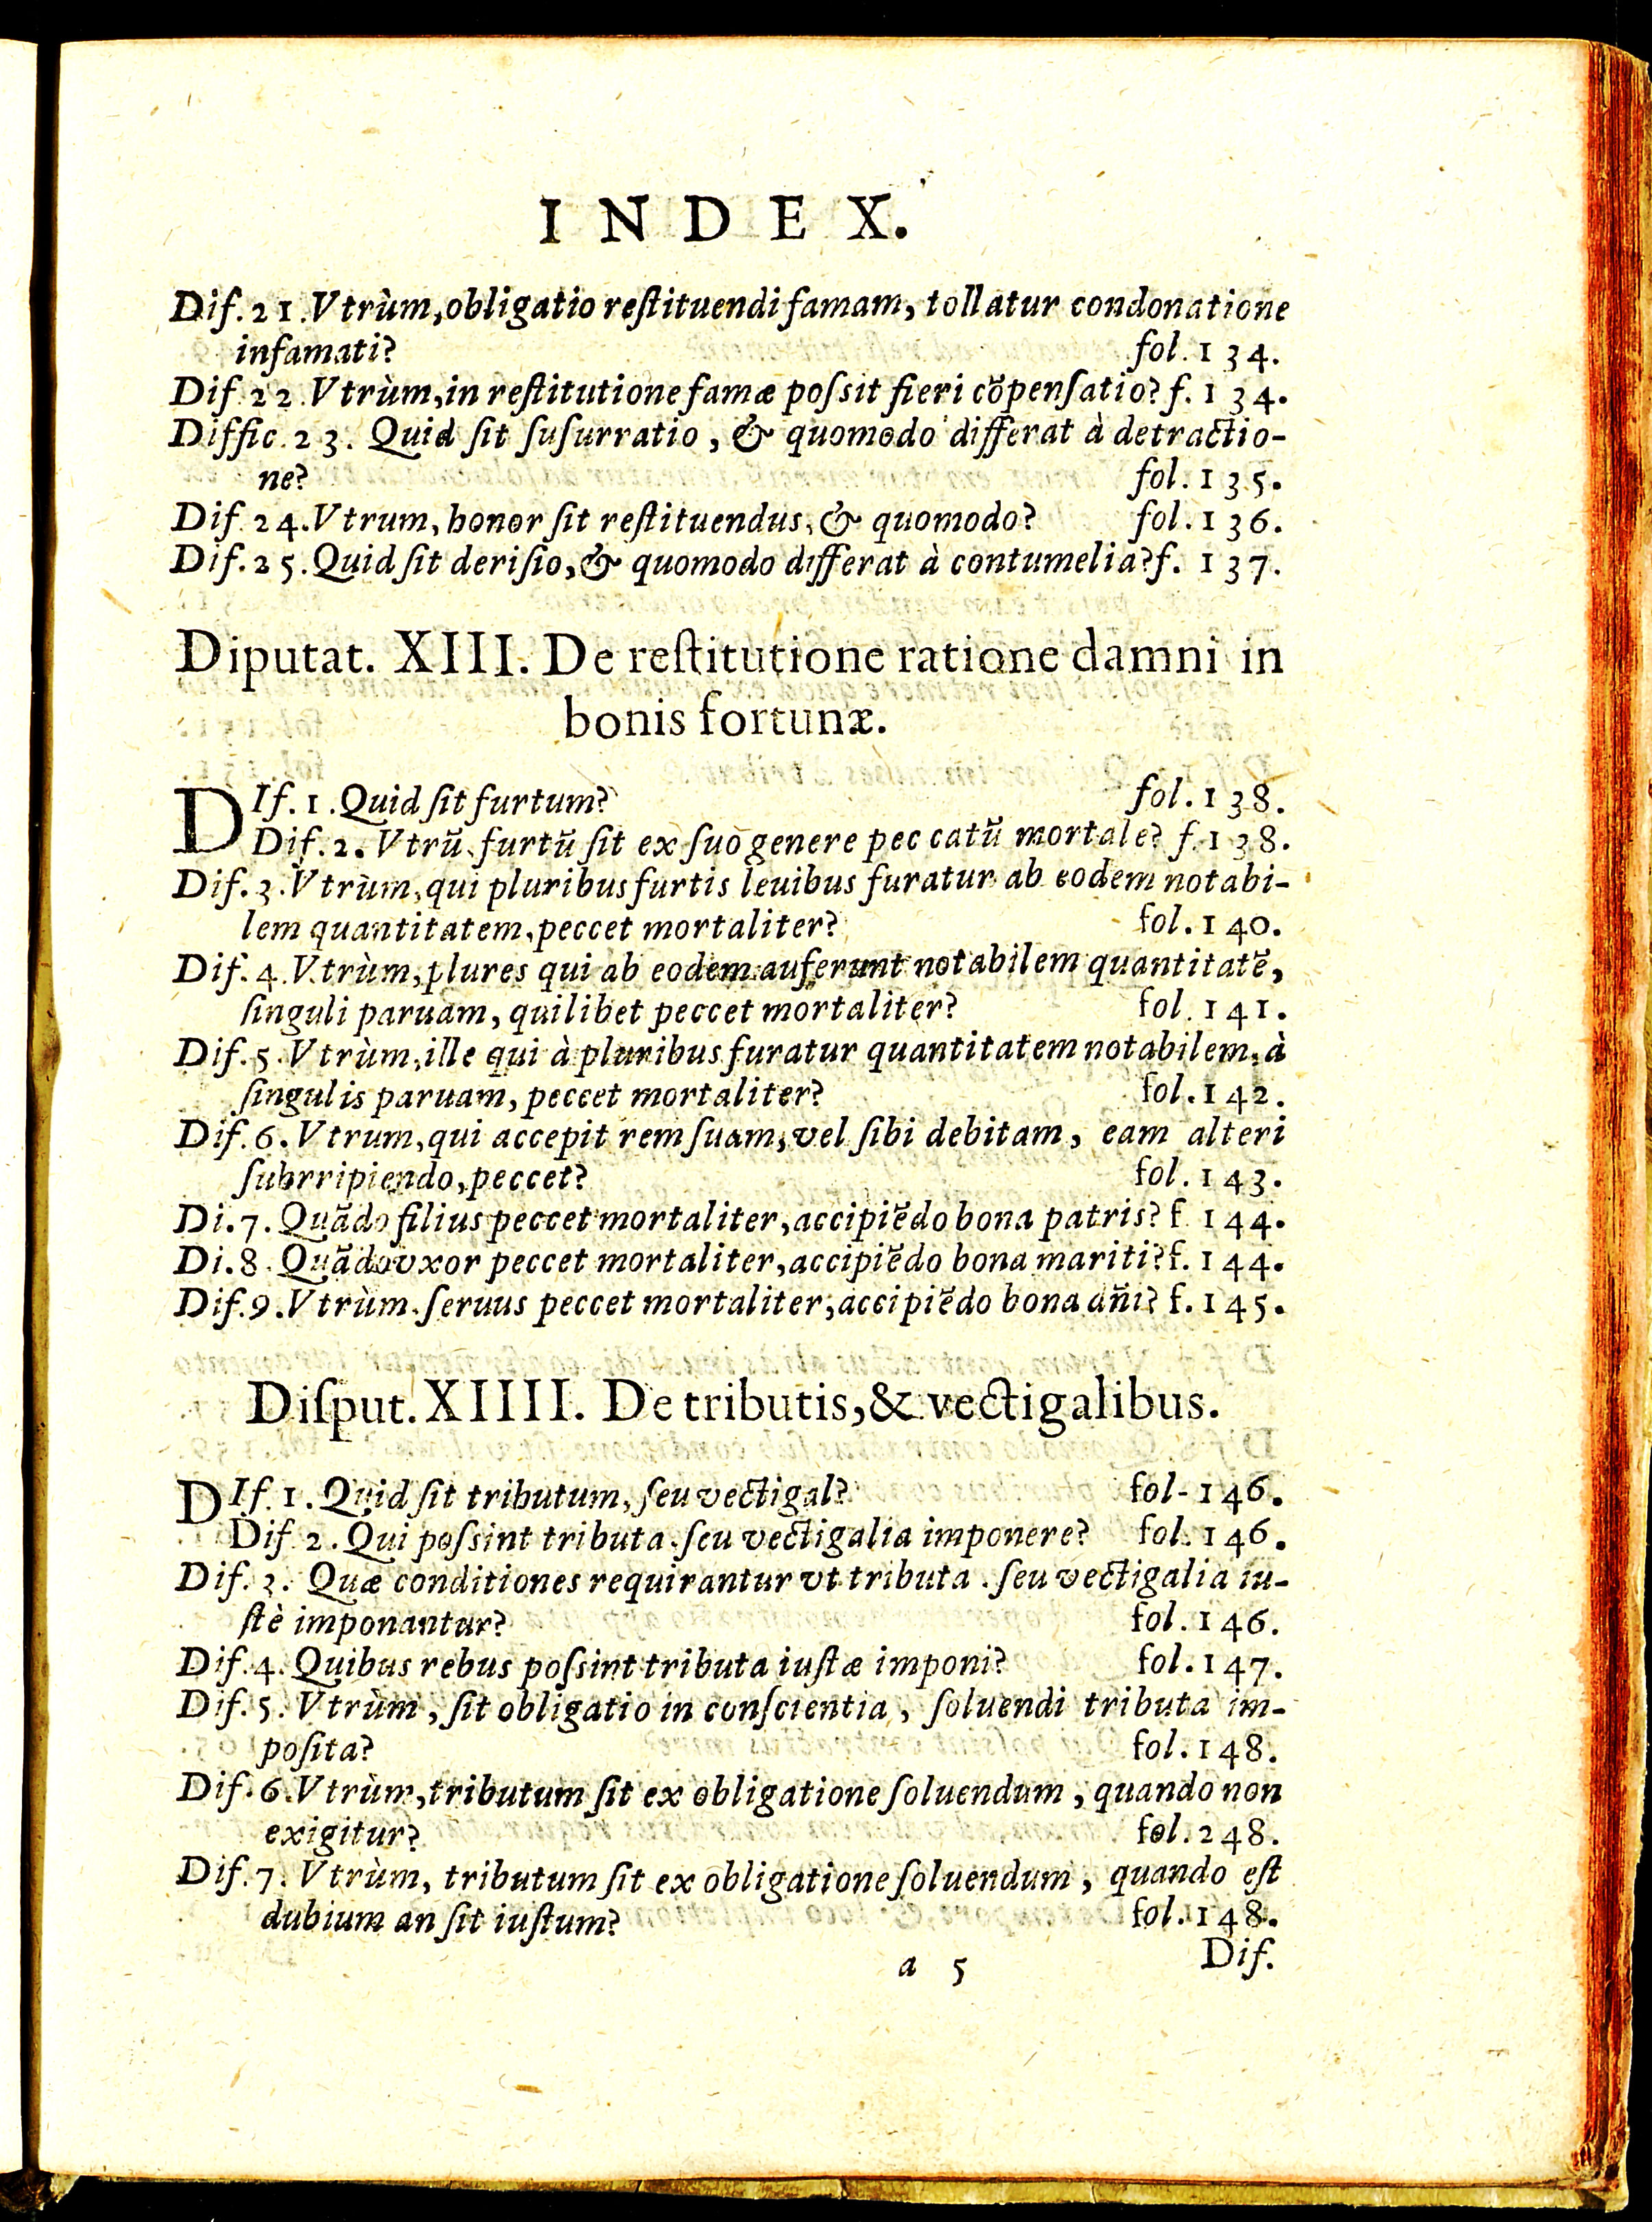 INDEX.
Dif. 21. Vtrùm, obligatio reſtituendi famam, tollatur condonatione
infamati? fol. 134.
Dif. 22. Vtrùm, in reſtitutione famæ poſsit fieri cõpenſatio? f. 134.
Diffic. 23. Quid ſit ſuſurratio, & quomodo differat à detractio-
ne? fol. 135.
Dif. 24. Vtrum, honor ſit reſtituendus, & quomodo? fol. 136.
Dif. 25. Quid ſit deriſio, & quomodo differat à contumelia? f. 137.
Diputat. XIII. De reſtitutione ratione damni in
bonis fortunæ.
DIf. 1. Quid ſit furtum? fol. 138.
Dif. 2. Vtrũ furtũ ſit ex ſuo genere peccatũ mortale? f. 138.
Dif. 3. Vtrùm, qui pluribus furtis leuibus furatur ab eodem notabi-
lem quantitatem, peccet mortaliter? fol. 140.
Dif. 4. Vtrùm, plures qui ab eodem auferunt notabilem quantitatẽ,
ſinguli paruam, quilibet peccet mortaliter? fol. 141.
Dif. 5. Vtrùm, ille qui à pluribus furatur quantitatem notabilem, à
ſingulis paruam, peccet mortaliter? fol. 142.
Dif. 6. Vtrum, qui accepit rem ſuam, vel ſibi debitam, eam alteri
ſubrripiendo, peccet? fol. 143.
Di. 7. Quãdo filius peccet mortaliter, accipiẽdo bona patris? f. 144.
Di. 8. Quãdo vxor peccet mortaliter, accipiẽdo bona mariti? f. 144.
Dif. 9. Vtrùm. ſeruus peccet mortaliter, accipiẽdo bona dñi? f. 145.
Diſput. XIIII. De tributis, & vectigalibus.
DIf. 1. Quid ſit tributum, ſeu vectigal? fol- 146.
Dif. 2. Qui poſsint tributa. ſeu vectigalia imponere? fol. 146.
Dif. 3. Quæ conditiones requirantur vt tributa. ſeu vectigalia iu-
ſtè imponantur? fol. 146.
Dif. 4. Quibus rebus poſsint tributa iuſtæ imponi? fol. 147.
Dif. 5. Vtrùm, ſit obligatio in conſcientia, ſoluendi tributa im-
poſita? fol. 148.
Dif. 6. Vtrùm, tributum ſit ex obligatione ſoluendum, quando non
exigitur? fol. 248.
Dif. 7. Vtrùm, tributum ſit ex obligatione ſoluendum, quando eſt
dubium an ſit iuſtum? fol. 148.
a 5 Dif.